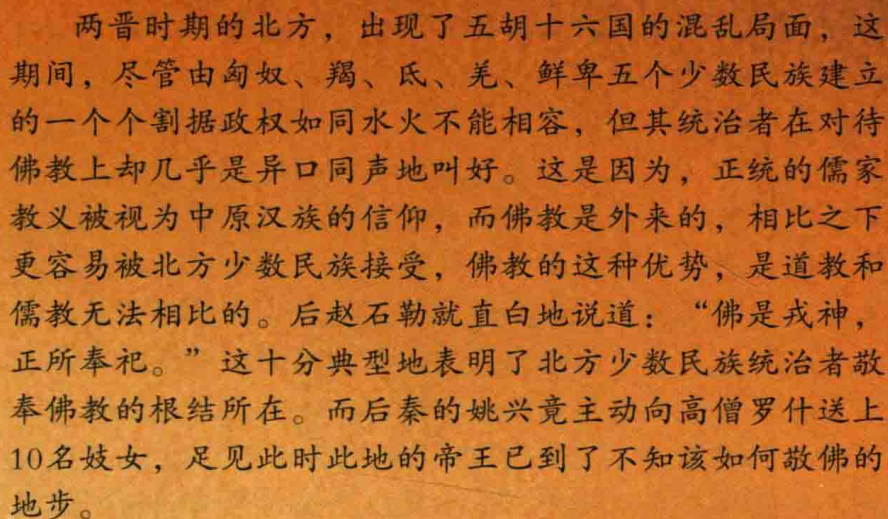 两晋时期的北方，出现了五胡十六国的混乱局面，这
期间，尽管由匈奴、羯、氐、羌、鲜卑五个少数民族建立
的一个个割据政权如同水火不能相容，但其统治者在对待
佛教上却几乎是异口同声地叫好。这是因为，正统的儒家
教义被视为中原汉族的信仰，而佛教是外来的，相比之下
更容易被北方少数民族接受，佛教的这种优势，是道教和
儒教无法相比的。后赵石勒就直白地说道：“佛是戎神，
正所奉祀。”这十分典型地表明了北方少数民族统治者敬
奉佛教的根结所在。而后秦的姚兴竟主动向高僧罗什送上
10名妓女，足见此时此地的帝王已到了不知该如何敬佛的
地步。